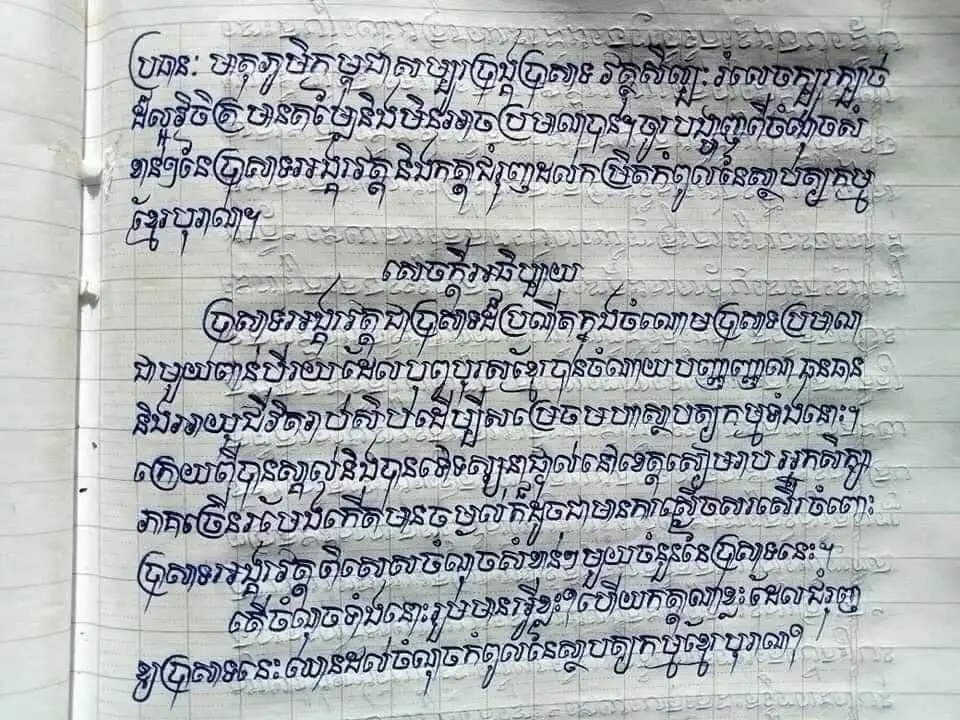 ប្រធាន: មាតុភូមិកម្ពុជាសម្បូរប្រាង្គប្រាសាទ វត្ថុសិល្បៈ រំលេចក្បូរក្បាច់
ដ៏ល្អវិចិត្រមានតម្លៃនិងមិនអាចប្រមាណបាន។ ចូរបង្ហាញពីចំណុចសំ
ខាន់ៗនៃប្រាសាទអង្គរវត្ត និងកត្តាជំរុញដល់កម្រិតកំពូលនៃស្ថាបត្យកម្ម
ខ្មែរបុរាណ។
សេចក្តីអធិប្បាយ
ប្រាសាទអង្គរវត្ត ជាប្រាសាទដ៏ប្រណីតក្នុងចំណោមប្រាសាទប្រមាណ
ជាមួយពាន់បីរយ ដែលបុព្វបុរសខ្មែរបានចំណាយបញ្ញាញាណ ធនធាន
និងអាយុជីវិតរាប់សិបដើម្បីសម្រេចមហាស្ថាបត្យកម្មទាំងនោះ។
ក្រោយពីបានស្គាល់និងបានទៅទស្សនាផ្ទាល់នៅខេត្តសៀមរាប អ្នកសិក្សា
ភាគច្រើនរមែងកើតមានចម្ងល់ក៏ដូចជាមានការស្ងើចសរសើរចំពោះ
ប្រាសាទអង្គរវត្ត ពិសេសចំណុចសំខាន់ៗ មួយចំនួននៃប្រាសាទនេះ។
តើចំណុចទាំងនោះរួមមានអ្វីខ្លះ? ហើយកត្តាណាខ្លះ ដែលជំរុញ
ឱ្យប្រាសាទនេះ ឈានដល់ចំណុចកំពូលនៃស្ថាបត្យកម្មខ្មែរបុរាណ?